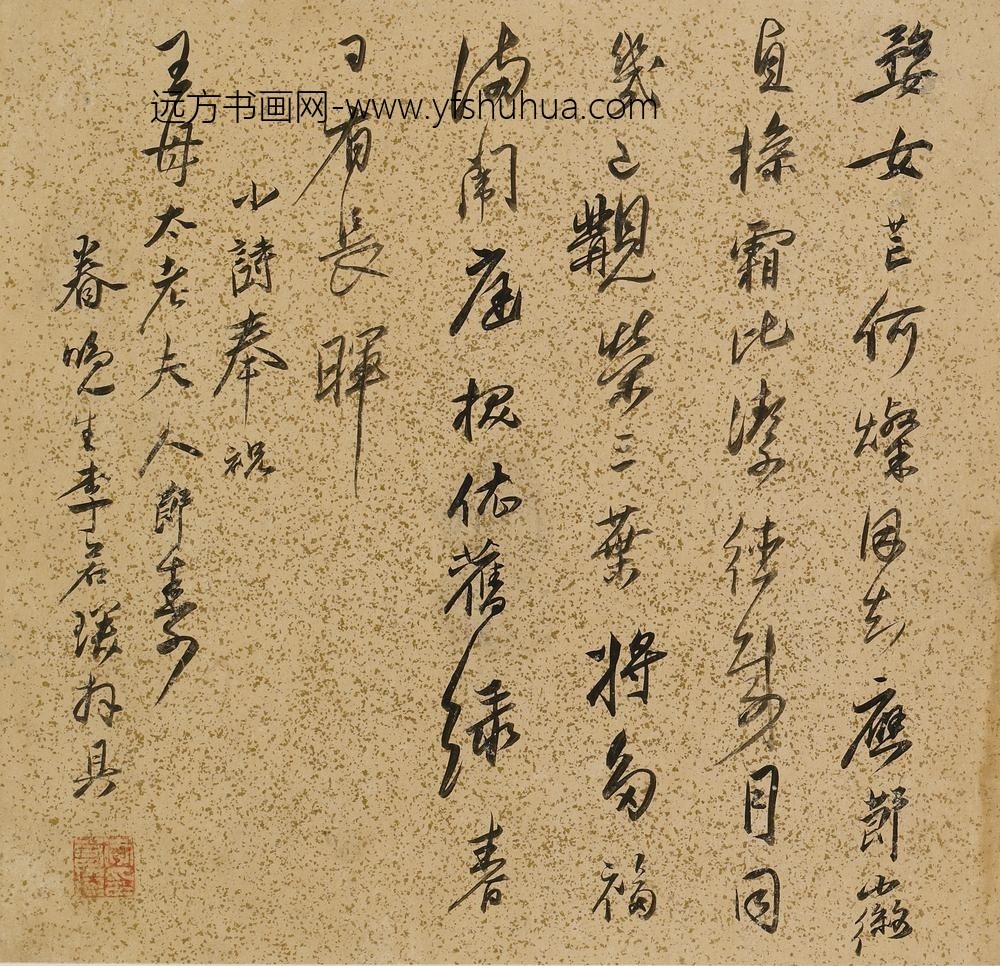 婺女芒何燦因知應節徽
貞操霜比潔經歲月同
幾已觀榮三葉將多福
滿閑庭槐依舊緑春
日有長暉
小詩奉祝
王母太老夫人節壽
眷晚生李若璞拜具
远方书画网-www.yfshuhua.com